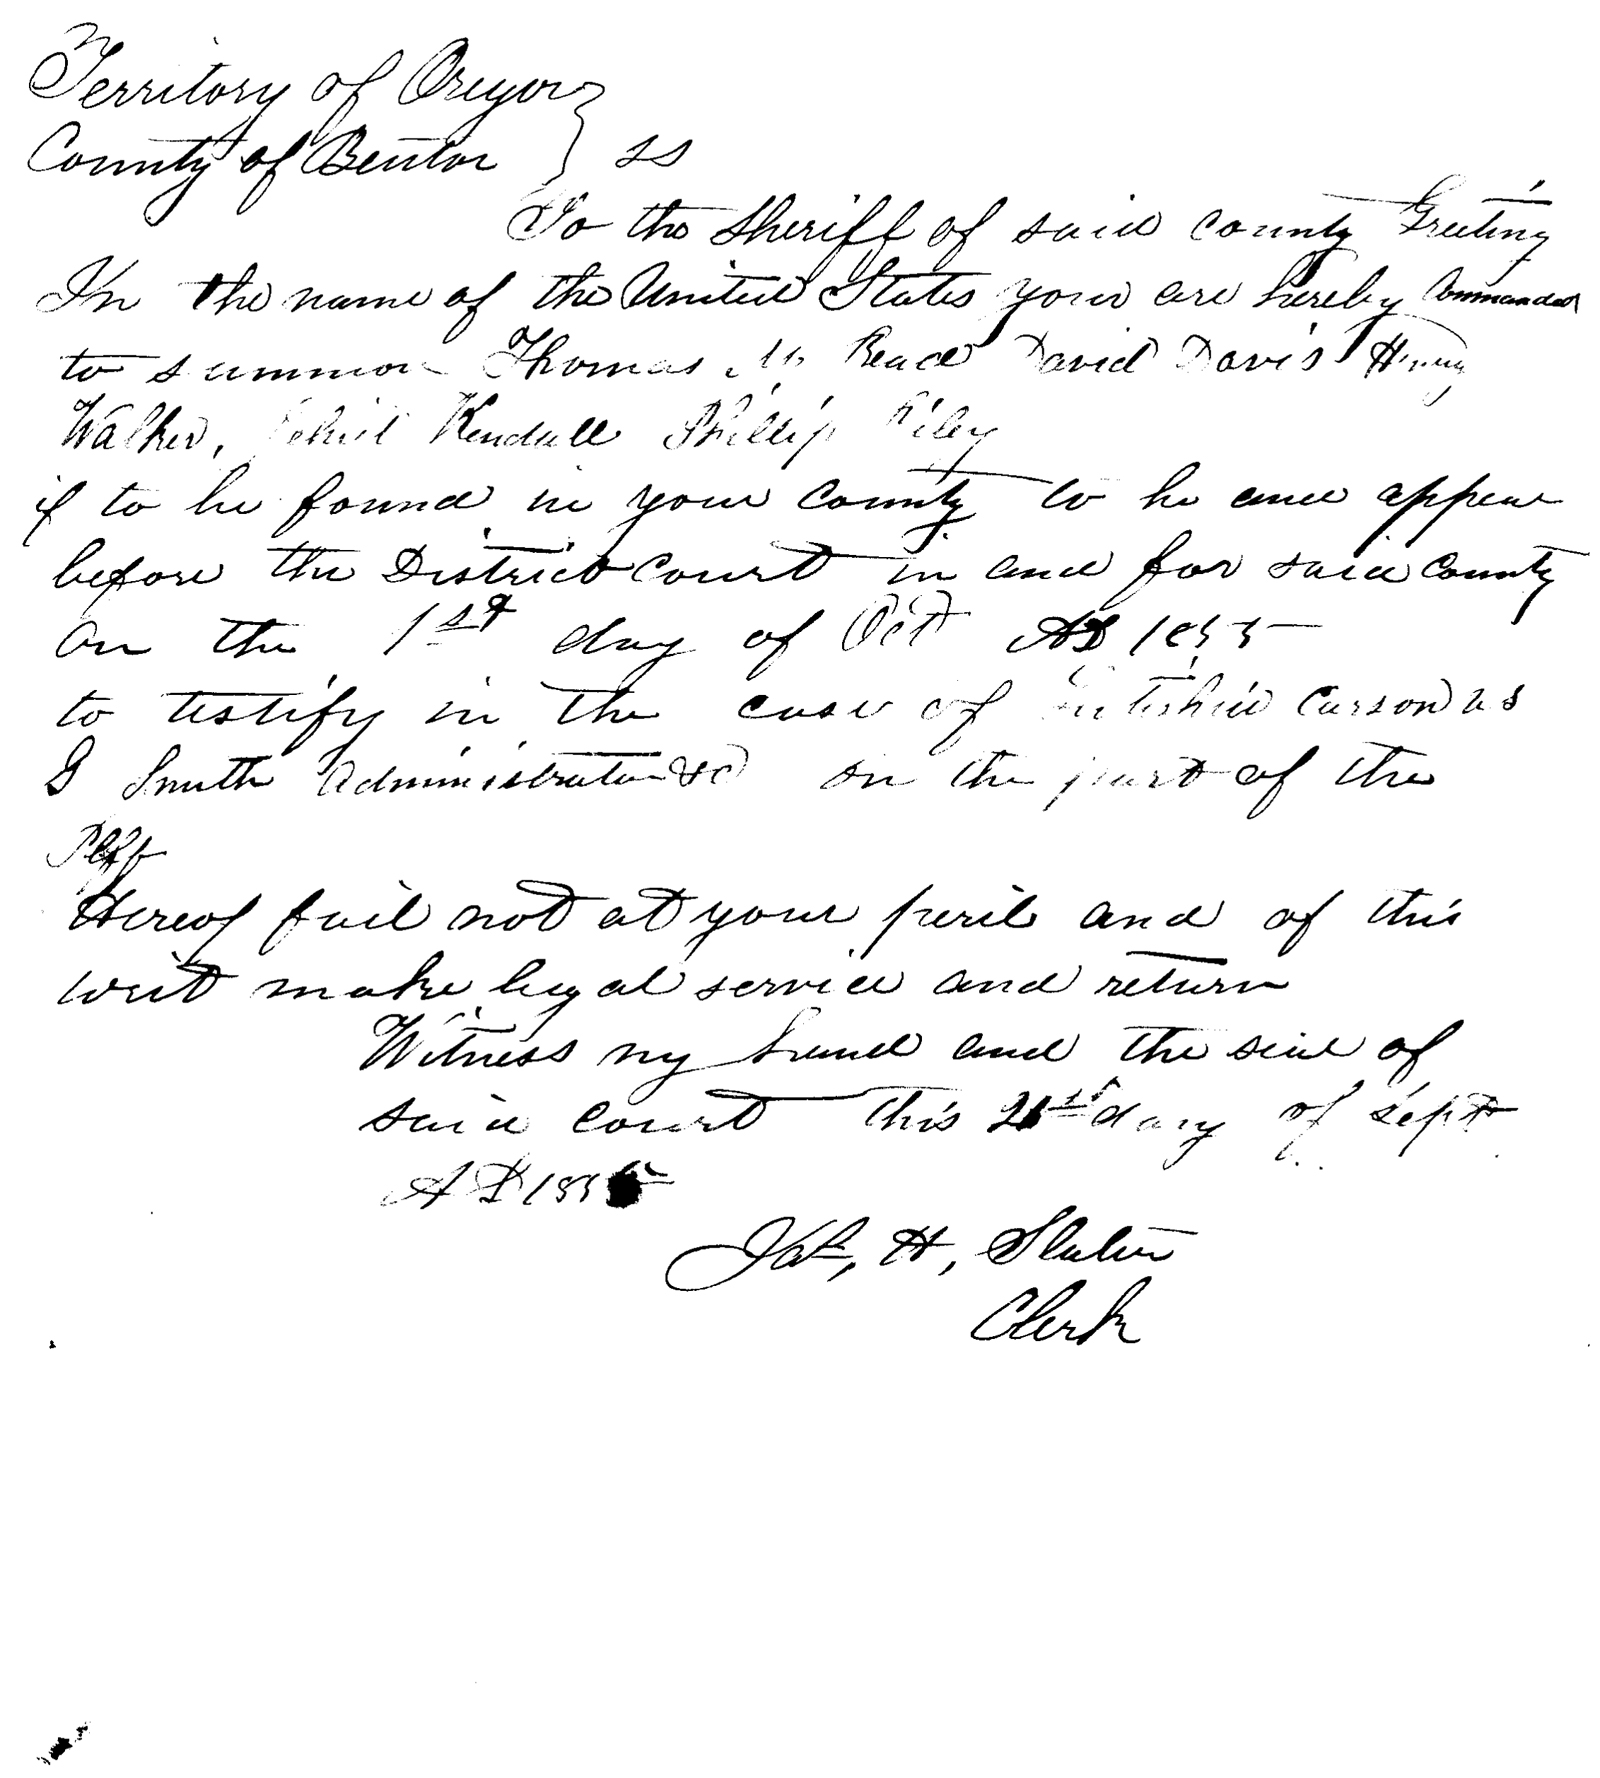 Territory of Oregon
County of Benton } ss
To the Sheriff of said county Greeting
In the name of the United States your are hereby Commanded
to summon Thomas M Reace David Davis Henry
Walker, Kendall Phillip Riley
if to be found in your County to be and appear
before the District court in and for said County
on the 1st day of Oct AD 1855
to testify in the case of Carson vs
G Smith Administrator &c on the part of the
Plff
Hereof fail not at your peril and of this
writ make legal service and return
Witness my hand and the seal of
said court this 21st day of Sept
A D 1855
Jas, H, Slater
Clerk